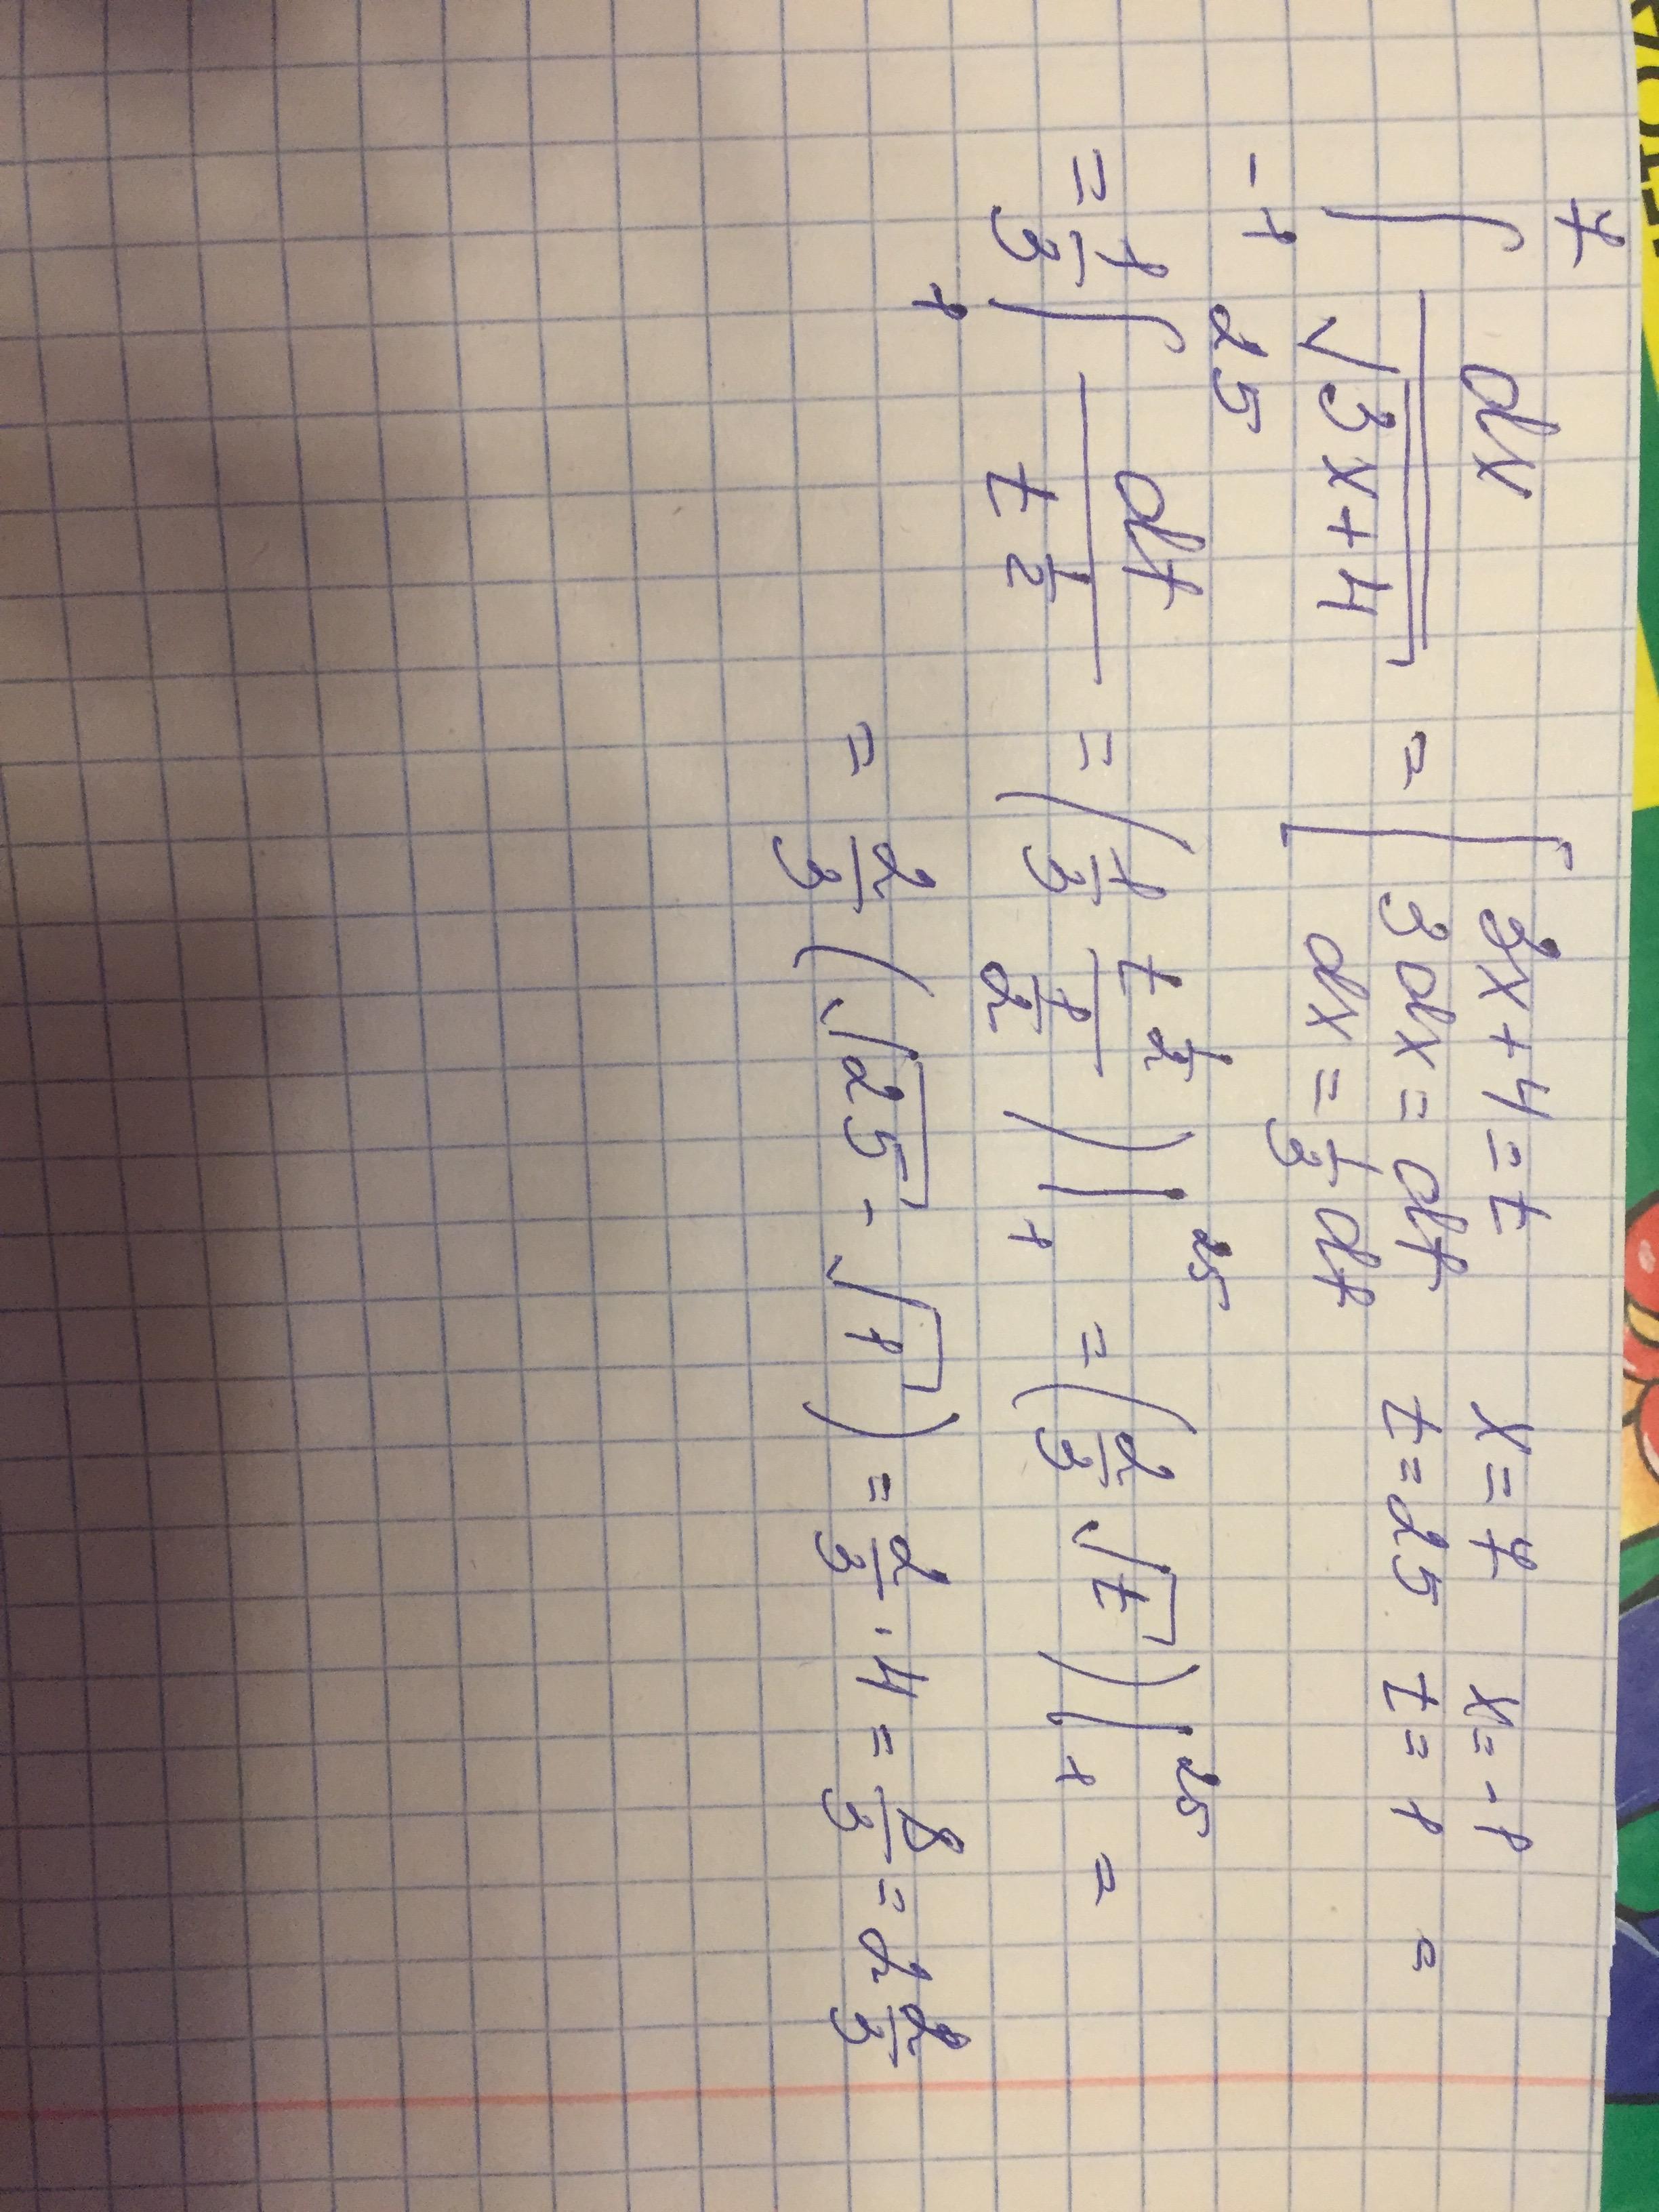 ∫_{-1}^{7} dx/√(3x+4) = [ 3x+4=t x=7 x=-1
3dx=dt t=25 t=1 =
dx=1/3 dt
= 1/3 ∫_{1}^{25} dt/t^{1/2} = (1/3 t^{1/2}/(1/2)) |_{1}^{25} = (2/3 √t) |_{1}^{25} =
= 2/3 (√25 - √1) = 2/3 · 4 = 8/3 = 2 2/3